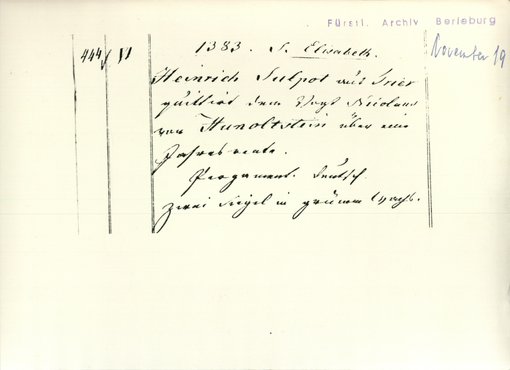 Fürstl. Archiv Berleburg
444 VI 1383. S. Elisabeth. November 19
Heinrich Sulpot aus Trier
quittirt dem Vogt Nicolaus
von Hunoltstein über eine
Jahresrente.
Pergament. Deutsch.
zwei Siegel in grünem Wachs.